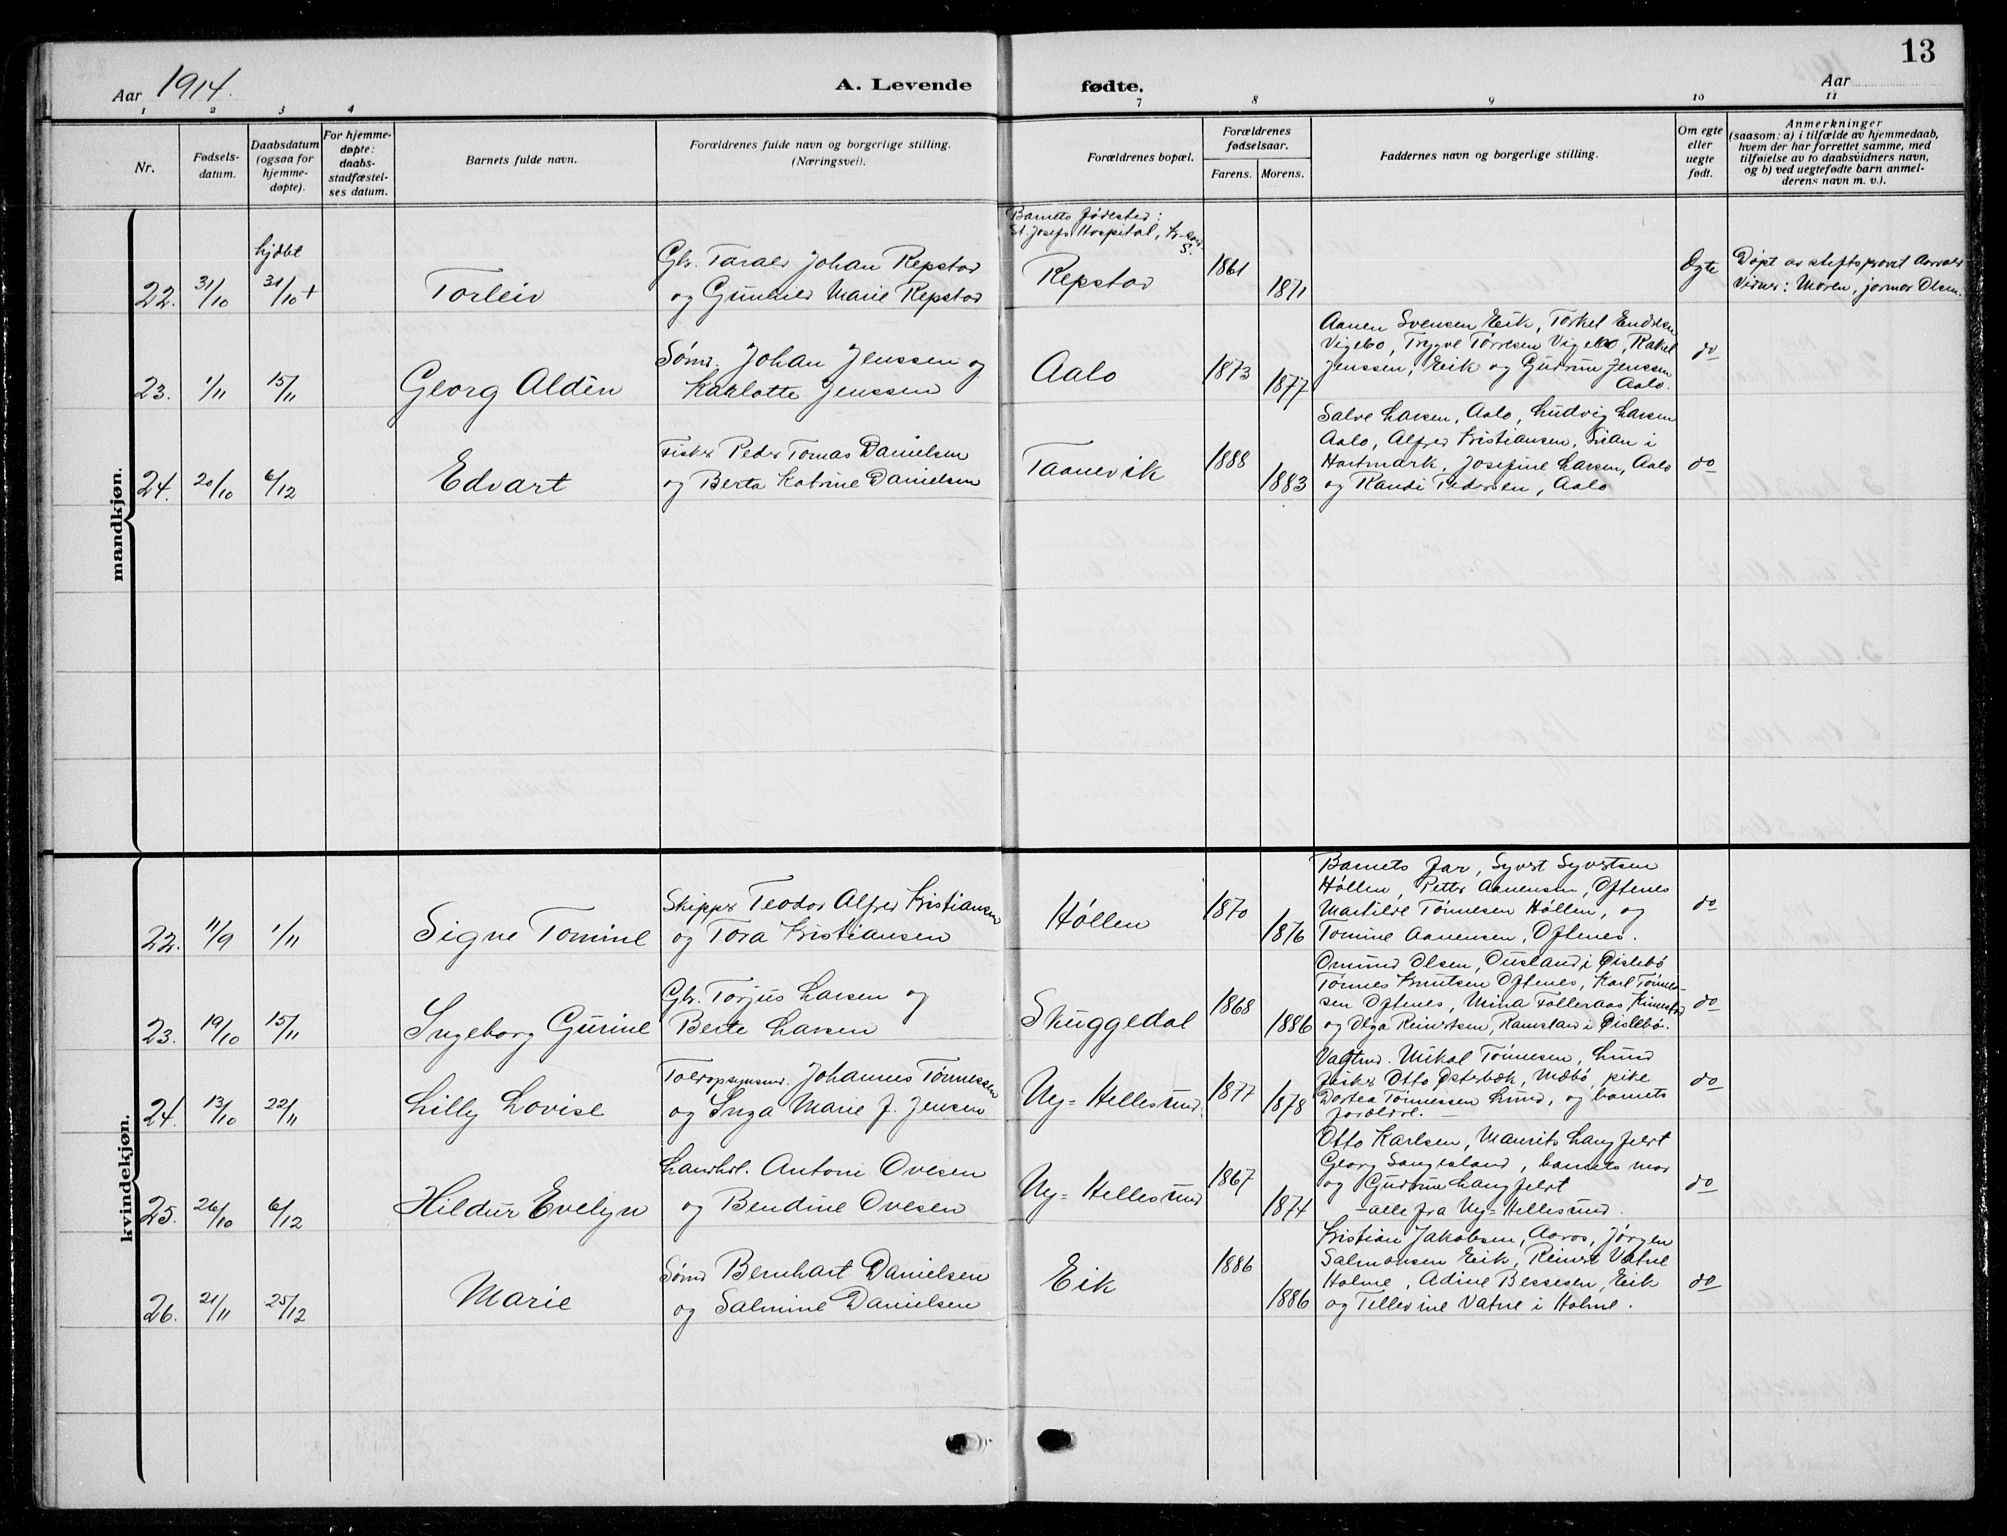 13
Aar 1914.
A. Levende fødte.
Aar
1 2 3 4 7 8 9 10 11
Nr.
Fødsels-
datum.
Daabsdatum
(ogsaa for
hjemme-
døpte).
For hjemme-
døpte:
daabs-
stadfæstel-
ses datum.
Barnets fulde navn.
Forældrenes fulde navn og borgerlige stilling.
(Næringsvei).
Forældrenes bopæl.
Forældrenes
fødselsaar.
Farens. Morens.
Faddernes navn og borgerlige stilling.
Om egte
eller
uegte
født.
Anmerkninger
(saasom: a) i tilfælde av hjemmedaab,
hvem der har forrettet samme, med
tilføielse av to daabsvidners navn,
og b) ved uegtefødte barn anmel-
derens navn m. v.).
mandkjøn.
22. 31/10
hjdbt
31/10 +
Torleiv
Gbr. Tarald Johan Repstad
og Gunhild Marie Repstad
Barnets fødested:
St. Josefs Hospital, Kr.sand
S.
Repstad
1861
1871
Egte
Døpt av stiftsprovst
Vidner: Moren, jormor Olsen.
23. 1/11 15/11
Georg Aldén
Sømd. Johan Jenssen og
Karlotte Jenssen
Aalo
1873
1877
Aanen Svensen Eik, Torkel Endresen
Vigebo, Trygve Tørresen Vigebo, Rakel
Jenssen, Eik og Gudrun Jenssen
Aalo.
do
24. 20/10 6/12
Edvart
Fisker Peder Tomas Danielsen
og Berta Katrine Danielsen
Taanevik
1888
1883
Salve Larsen, Aalo, Ludvig Larsen
Aalo, Alfred Kristiansen, i
Hartmark, Josefine Larsen, Aalo
og Randi Pedersen, Aalo
do
kvindekjøn.
22. 11/9 1/11
Signe Tomine
Skipper Teodor Alfred Kristiansen
og Tora Kristiansen
Høllen
1870
1876
Barnets far, Syvert Syvertsen
Høllen, Petter Aanensen, Oftenes
Martilde Tønnesen Høllen, og
Tomine Aanensen, Oftenes.
do
23. 19/10 15/11
Ingeborg Gurine
Gbr. Torjus Larsen og
Berte Larsen
Skuggedal
1868
1886
Omund Olsen, Ousland i Øislebø
Tønnes Knutsen Oftenes, Karl Tønne-
sen Oftenes, Mina Folleraas, Kinestad
og Olga Reinertsen, Ramsland i Øislebø.
do
24. 13/10 22/11
Lilly Lovise
Toldopsynsmd. Johannes Tønnessen
og Inga Marie J. Jensen
Ny=Hellesund.
1877
1878
Vagtmd. Mikal Tønnesen, Lund
fisker Otto Østerbæk, Mebø, pike
Dortea Tønnessen Lund, og barnets
forældre.
do
25. 26/10 6/12
Hildur Evelyn
Landhdl. Antoni Ovesen
og Bendine Ovesen
Ny=Hellesund
1867
1874
Otto Karlsen, Maurits Langfeldt
Georg Sangesland, barnets mor
og Gudrun Langfeldt
- alle fra Ny=Hellesund.
do
26. 21/11 25/12
Marie
Sømd Bernhart Danielsen
og Salmine Danielsen
Eik
1886
1886
Kristian Jakobsen, Aaros, Jørgen
Salmonsen Eik, Reinert Vatne
Holme, Adine Bessesen, Eik
og Tellevine Vatne i Holme.
do